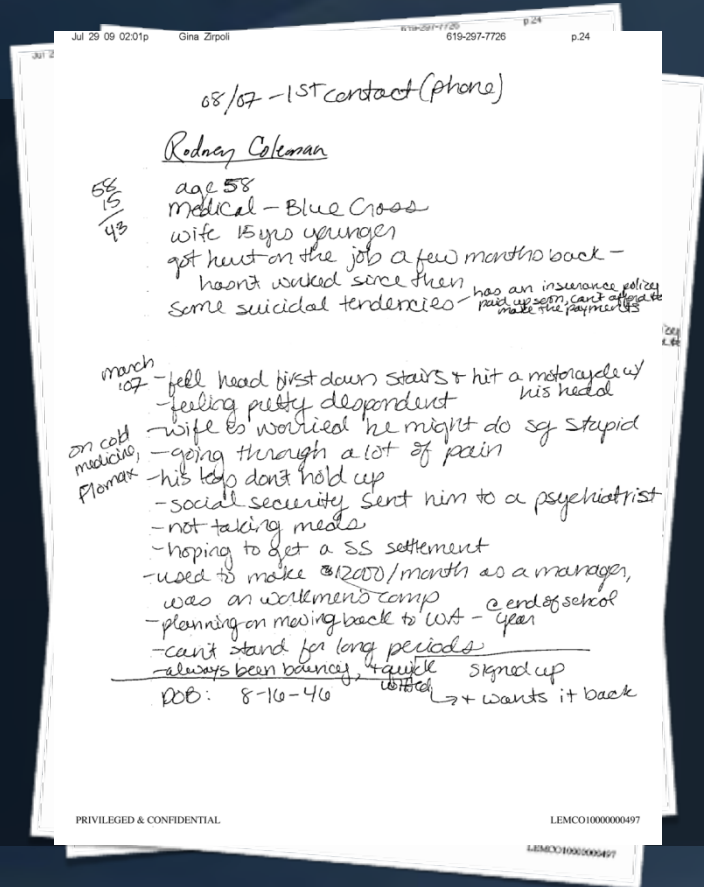 619-297-7726 p.24
Jul 29 09 02:01p Gina Zirpoli 619-297-7726 p.24
08/07 - 1ST contact (phone)
Rodney Coleman
58
15
43
age 58
medical - Blue Cross
wife 15 yrs younger
got hurt on the job a few months back -
hasn't worked since then
some suicidal tendencies - has an insurance policy
paid up soon, can't afford to
make the payments
march
'07 - fell head first down stairs & hit a motorcycle w/
his head
- feeling pretty despondent
- wife is worried he might do sg stupid
on cold
medicine,
Flomax
- going through a lot of pain
- his legs don't hold up
- social security sent him to a psychiatrist
- not taking meds
- hoping to get a SS settlement
- used to make $12000/month as a manager,
was on workmen's comp
- planning on moving back to WA - @ end of school
year
- can't stand for long periods
- always been bouncy, & quick
witted
signed up
↳ + wants it back
DOB: 8-16-46
PRIVILEGED & CONFIDENTIAL LEMCO10000000497
LEMCO10000000497